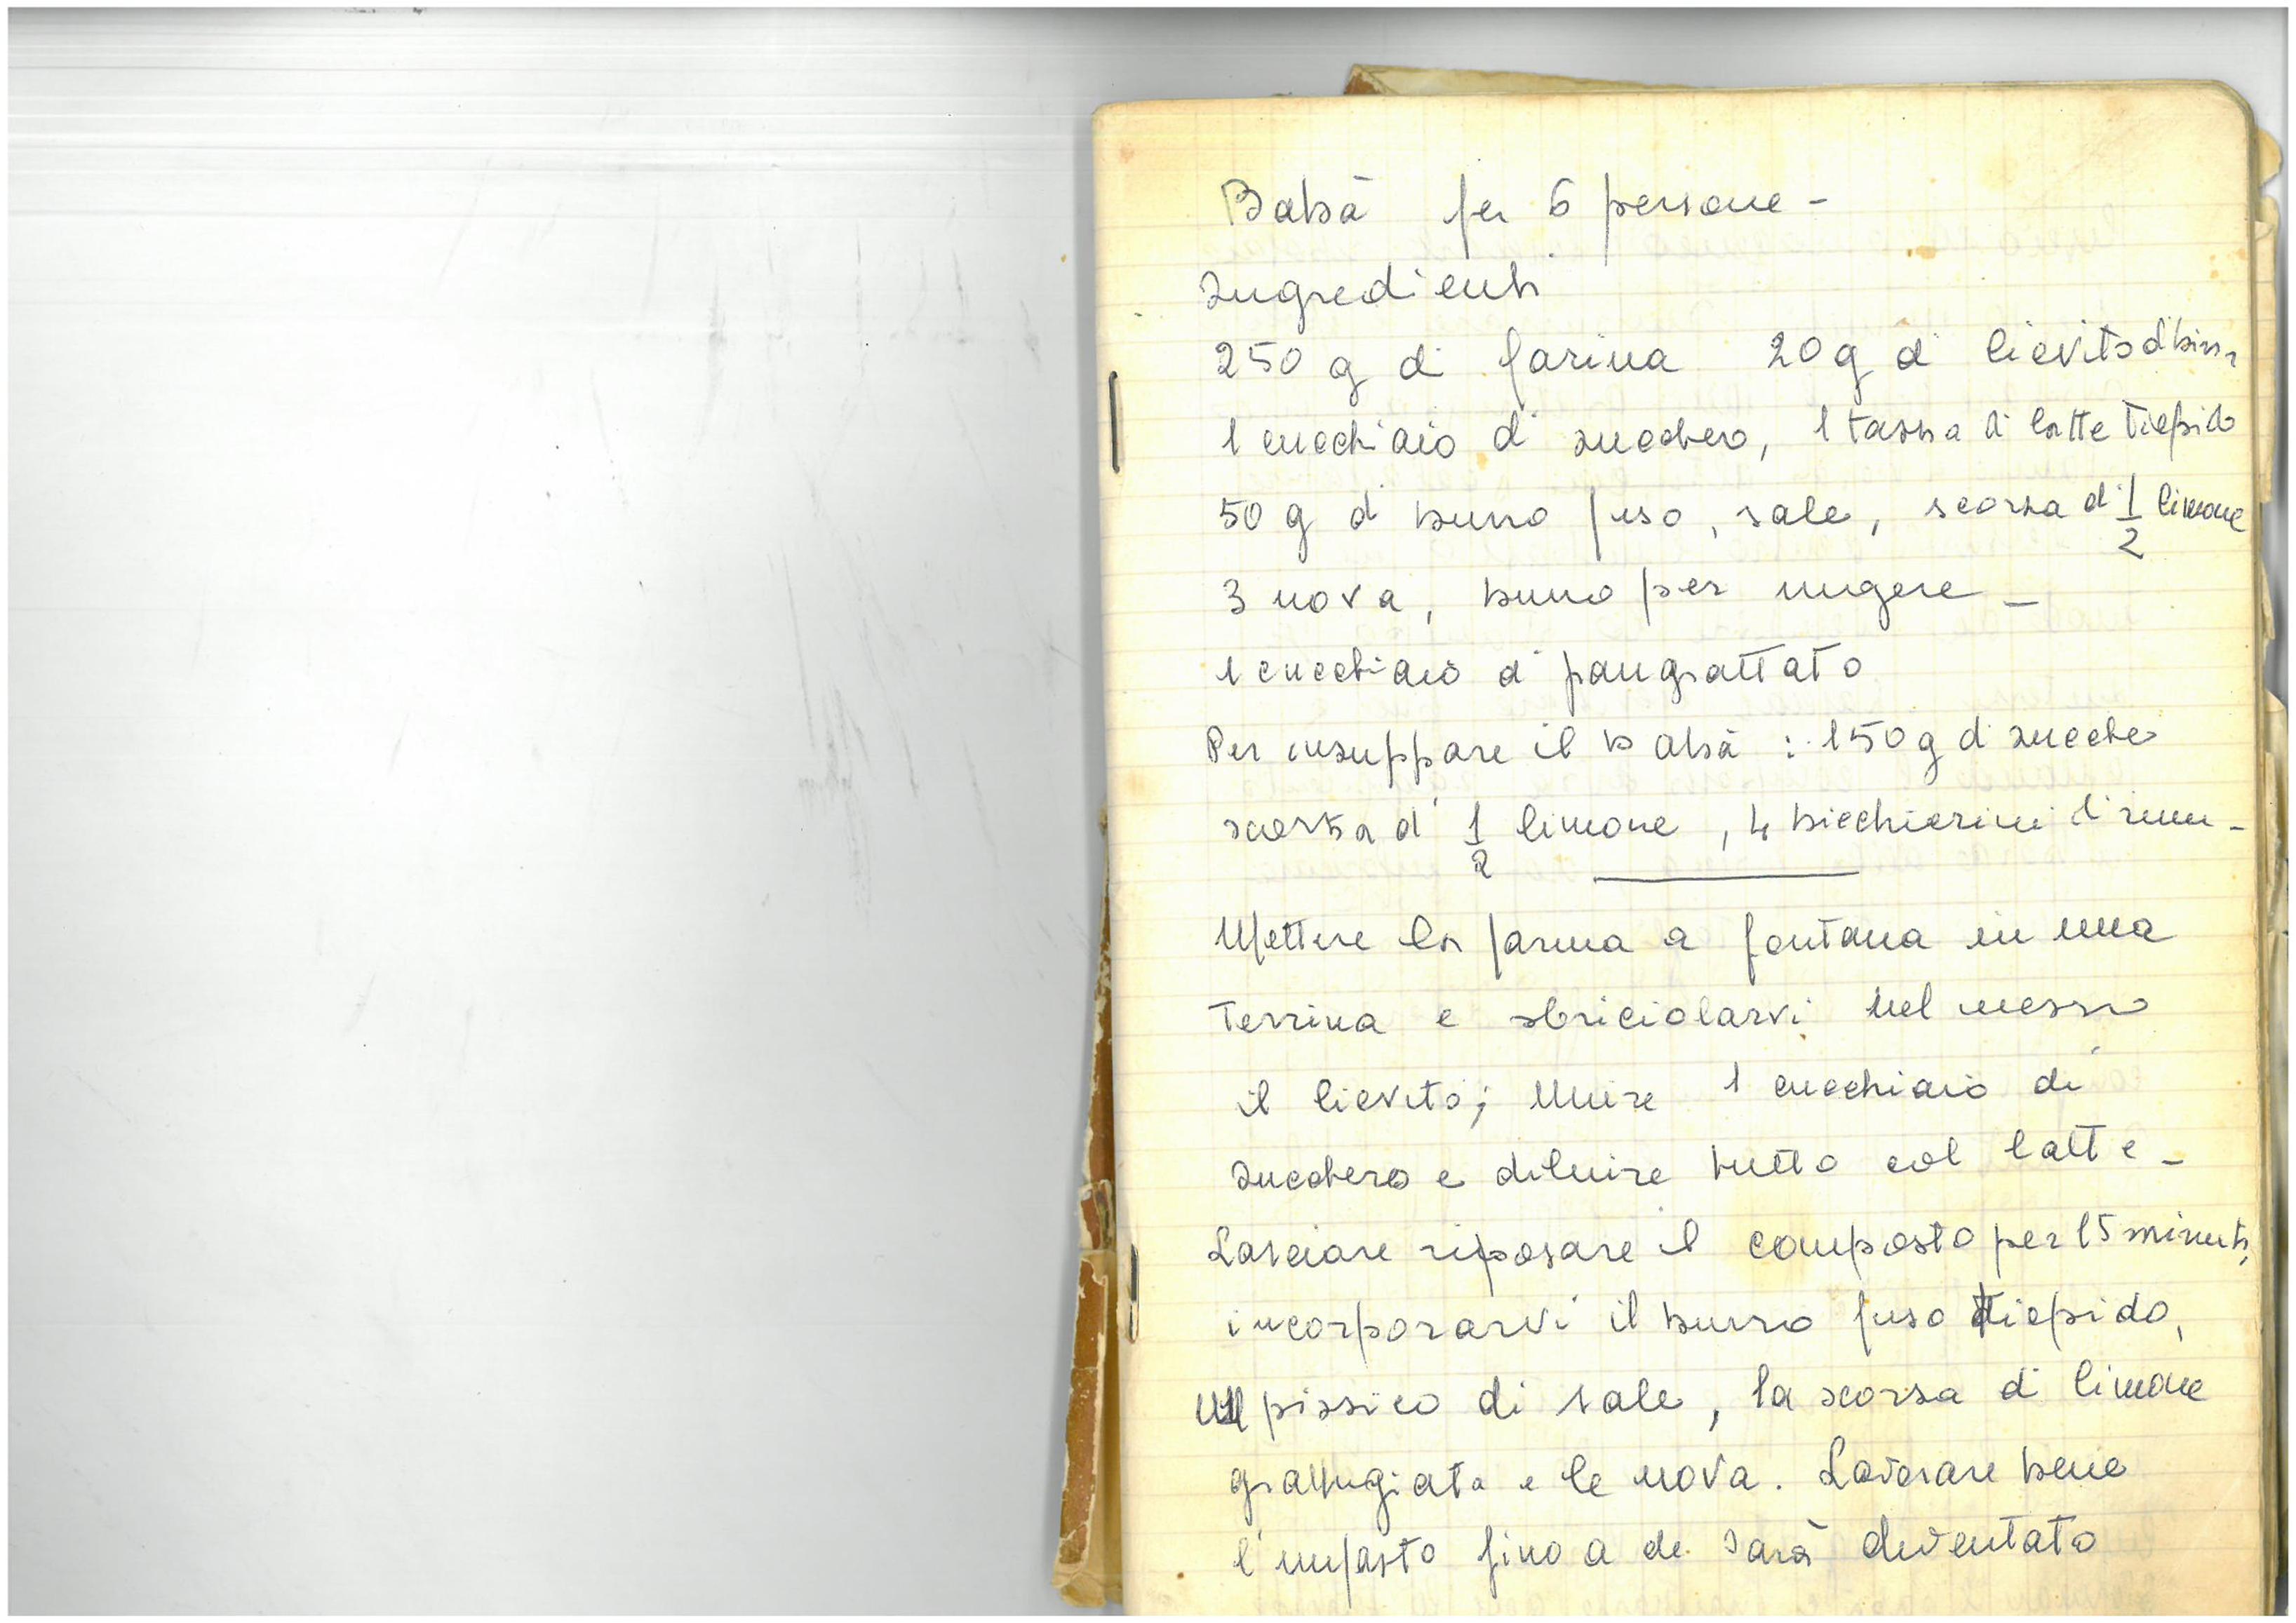 Babà per 6 persone -
Ingredienti
250 g di farina 20 g di lievito di birra
1 cucchiaio di zucchero, 1 tazza di latte tiepido
50 g di burro fuso, sale, scorza di 1/2 limone
3 uova, burro per ungere -
1 cucchiaio di pangrattato
Per insuppare il babà : 150 g di zucche
scorza di 1/2 limone, 4 bicchierini di rum -
Mettere la farina a fontana in una
terrina e sbriciolarvi nel mezzo
il lievito; Unire 1 cucchiaio di
zucchero e diluire tutto col latte -
Lasciare riposare il composto per 15 minuti,
incorporarvi il burro fuso tiepido,
un pizzico di sale, la scorza di limone
grattugiata e le uova. Lavorare bene
l'impasto fino a che sarà diventato